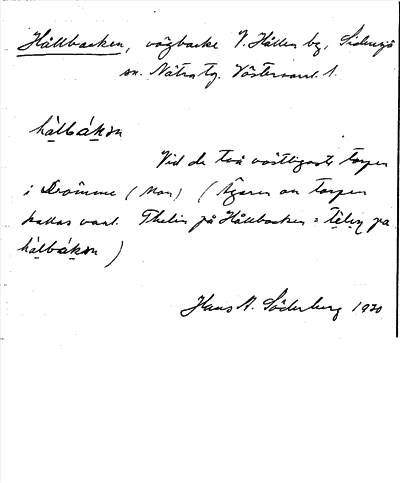 Hållbacken, vägbacke V. Hållen by, Sidensjö
sn. Nätra tg. Västernorrl. l.
hålbákọn
Vid de två västligaste torpen
i Drömme (Mon) (Ägaren av torpen
kallas vanl. Thelin på Hållbacken = telin pa
hålbákọn)
Hans A. Söderberg 1930